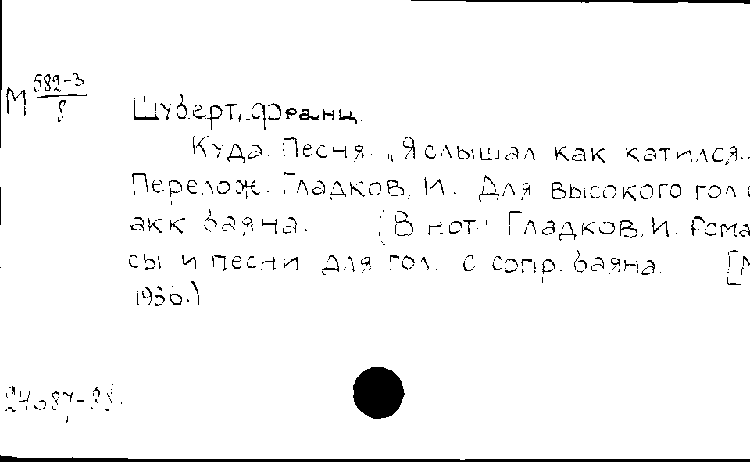 М 582-3/8
Шуберт, Франц.
Куда. Песня. „Я слышал как катился..
Перелож. Гладков, И. Для высокого гол
акк баяна. (В нот: Гладков, И. Рома
сы и песни для гол. с сопр. баяна. [М
1936.)